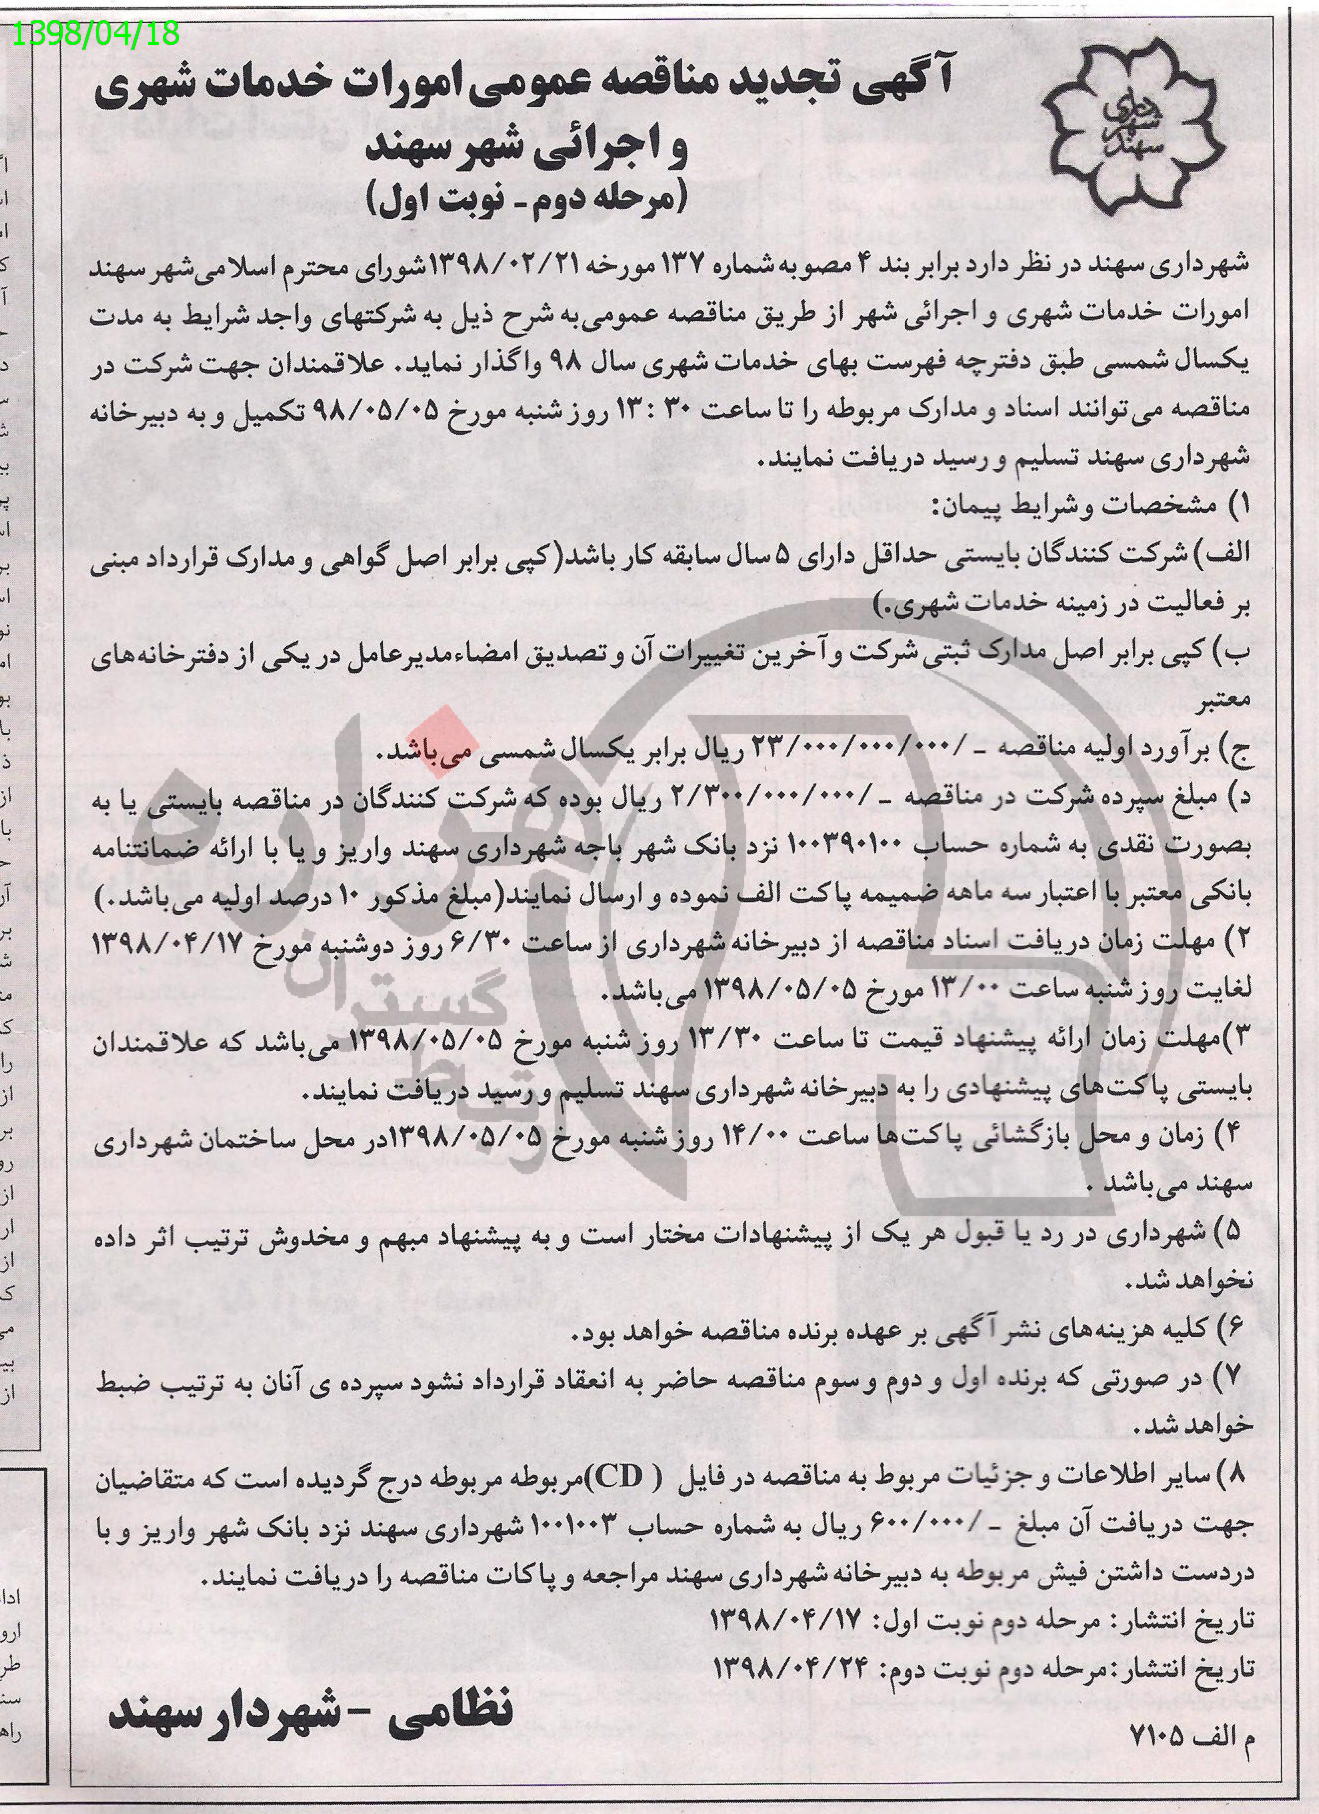 1398/04/18
شهرداری
سهند
آگهی تجدید مناقصه عمومی امورات خدمات شهری
و اجرائی شهر سهند
(مرحله دوم ـ نوبت اول)
شهرداری سهند در نظر دارد برابر بند ۴ مصوبه شماره ۱۳۷ مورخه ۱۳۹۸/۰۲/۲۱شورای محترم اسلامی‌شهر سهند
امورات خدمات شهری و اجرائی شهر از طریق مناقصه عمومی‌به شرح ذیل به شرکتهای واجد شرایط به مدت
یکسال شمسی طبق دفترچه فهرست بهای خدمات شهری سال ۹۸ واگذار نماید. علاقمندان جهت شرکت در
مناقصه می‌توانند اسناد و مدارک مربوطه را تا ساعت ۳۰ : ۱۳ روز شنبه مورخ ۹۸/۰۵/۰۵ تکمیل و به دبیرخانه
شهرداری سهند تسلیم و رسید دریافت نمایند.
۱) مشخصات و شرایط پیمان:
الف) شرکت کنندگان بایستی حداقل دارای ۵ سال سابقه کار باشد(کپی برابر اصل گواهی و مدارک قرارداد مبنی
بر فعالیت در زمینه خدمات شهری.)
ب) کپی برابر اصل مدارک ثبتی شرکت و آخرین تغییرات آن و تصدیق امضاء مدیرعامل در یکی از دفترخانه‌های
معتبر
ج) برآورد اولیه مناقصه ـ /۲۳/۰۰۰/۰۰۰/۰۰۰ ریال برابر یکسال شمسی می‌باشد.
د) مبلغ سپرده شرکت در مناقصه ـ /۲/۳۰۰/۰۰۰/۰۰۰ ریال بوده که شرکت کنندگان در مناقصه بایستی یا به
بصورت نقدی به شماره حساب ۱۰۰۳۹۰۱۰۰ نزد بانک شهر باجه شهرداری سهند واریز و یا با ارائه ضمانتنامه
بانکی معتبر با اعتبار سه ماهه ضمیمه پاکت الف نموده و ارسال نمایند(مبلغ مذکور ۱۰ درصد اولیه می‌باشد.)
۲) مهلت زمان دریافت اسناد مناقصه از دبیرخانه شهرداری از ساعت ۶/۳۰ روز دوشنبه مورخ ۱۳۹۸/۰۴/۱۷
لغایت روز شنبه ساعت ۱۳/۰۰ مورخ ۱۳۹۸/۰۵/۰۵ می‌باشد.
۳)مهلت زمان ارائه پیشنهاد قیمت تا ساعت ۱۳/۳۰ روز شنبه مورخ ۱۳۹۸/۰۵/۰۵ می‌باشد که علاقمندان
بایستی پاکت‌های پیشنهادی را به دبیرخانه شهرداری سهند تسلیم و رسید دریافت نمایند.
۴) زمان و محل بازگشائی پاکت‌ها ساعت ۱۴/۰۰ روز شنبه مورخ ۱۳۹۸/۰۵/۰۵در محل ساختمان شهرداری
سهند می‌باشد .
۵) شهرداری در رد یا قبول هر یک از پیشنهادات مختار است و به پیشنهاد مبهم و مخدوش ترتیب اثر داده
نخواهد شد.
۶) کلیه هزینه‌های نشر آگهی بر عهده برنده مناقصه خواهد بود.
۷) در صورتی که برنده اول و دوم و سوم مناقصه حاضر به انعقاد قرارداد نشود سپرده ی آنان به ترتیب ضبط
خواهد شد.
۸) سایر اطلاعات و جزئیات مربوط به مناقصه در فایل ( CD)مربوطه مربوطه درج گردیده است که متقاضیان
جهت دریافت آن مبلغ ـ /۶۰۰/۰۰۰ ریال به شماره حساب ۱۰۰۱۰۰۳ شهرداری سهند نزد بانک شهر واریز و با
دردست داشتن فیش مربوطه به دبیرخانه شهرداری سهند مراجعه و پاکات مناقصه را دریافت نمایند.
تاریخ انتشار: مرحله دوم نوبت اول: ۱۳۹۸/۰۴/۱۷
تاریخ انتشار:مرحله دوم نوبت دوم: ۱۳۹۸/۰۴/۲۴
نظامی - شهردار سهند
م الف ۷۱۰۵
هزاره
گستران